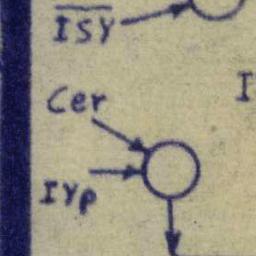 ISY
Cer
I
IYp